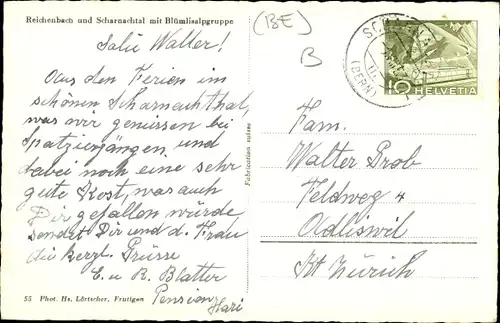 Reichenbach und Scharnachtal mit Blümlisalpgruppe
Salü Walter!
Aus den Ferien im
schönen Scharnachthal,
was wir geniessen bei
Spatziergängen, und
dabei noch eine sehr
gute Kost, was auch
Dir gefallen würde,
sendet Dir und d. Frau
die herzl. Grüsse
E. u R. Blatter
Pension Hari
55 Phot. Hs. Lörtscher, Frutigen
Fabrication suisse
(BE)
B
(BERN)
10 HELVETIA
Fam.
Walter Prob
Feldweg 4
Adliswil
Kt Zürich